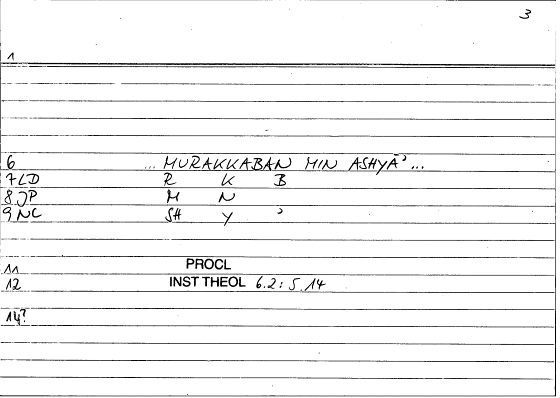 3
1
6 ... MURAKKABAN MIN ASHYĀʾ ...
7 LD R K B
8 JP M N
9 NC SH Y ʾ
11 PROCL
12 INST THEOL 6.2: 5.14
14?